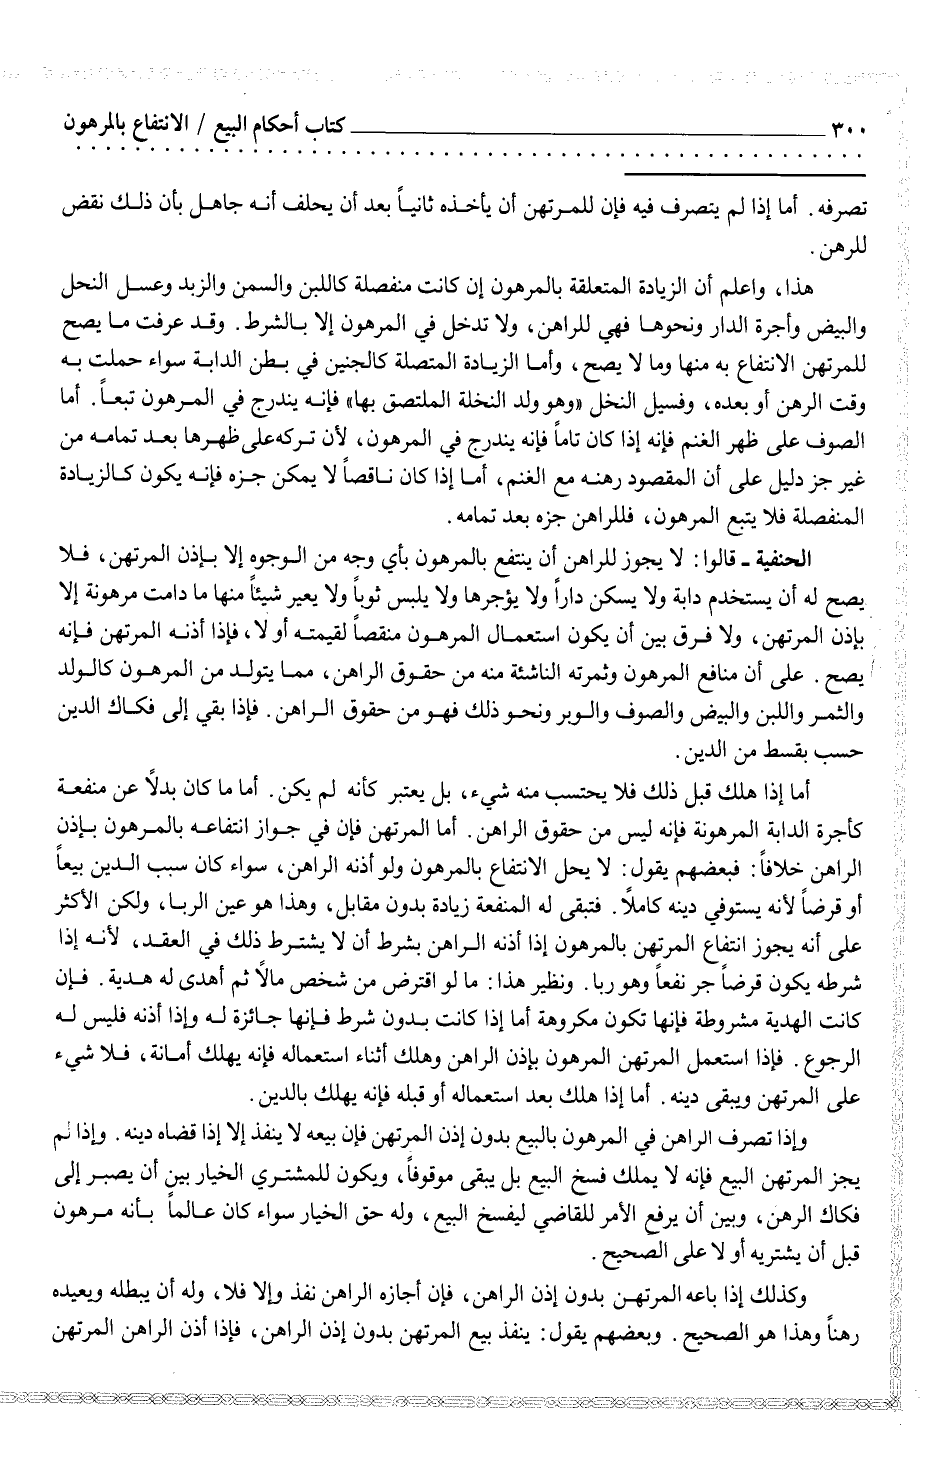 ٣٠٠ ــــــ كتاب أحكام البيع / الانتفاع بالمرهون
تصرفه. أما إذا لم يتصرف فيه فإن للمرتهن أن يأخذه ثانياً بعد أن يحلف أنه جاهل بأن ذلك نقض
للرهن.
هذا، واعلم أن الزيادة المتعلقة بالمرهون إن كانت منفصلة كاللبن والسمن والزبد وعسل النحل
والبيض وأجرة الدار ونحوها فهي للراهن، ولا تدخل في المرهون إلا بالشرط. وقد عرفت ما يصح
للمرتهن الانتفاع به منها وما لا يصح، وأما الزيادة المتصلة كالجنين في بطن الدابة سواء حملت به
وقت الرهن أو بعده، وفسيل النخل «وهو ولد النخلة الملتصق بها» فإنه يندرج في المرهون تبعاً. أما
الصوف على ظهر الغنم فإنه إذا كان تاماً فإنه يندرج في المرهون، لأن تركه على ظهرها بعد تمامه من
غير جز دليل على أن المقصود رهنه مع الغنم، أما إذا كان ناقصاً لا يمكن جزه فإنه يكون كالزيادة
المنفصلة فلا يتبع المرهون، فللراهن جزه بعد تمامه.
الحنفية ـ قالوا: لا يجوز للراهن أن ينتفع بالمرهون بأي وجه من الوجوه إلا بإذن المرتهن، فلا
يصح له أن يستخدم دابة ولا يسكن داراً ولا يؤجرها ولا يلبس ثوباً ولا يعير شيئاً منها ما دامت مرهونة إلا
بإذن المرتهن، ولا فرق بين أن يكون استعمال المرهون منقصاً لقيمته أو لا، فإذا أذنه المرتهن فإنه
يصح. على أن منافع المرهون وثمرته الناشئة منه من حقوق الراهن، مما يتولد من المرهون كالولد
والثمر واللبن والبيض والصوف والوبر ونحو ذلك فهو من حقوق الراهن. فإذا بقي إلى فكاك الدين
حسب بقسط من الدين.
أما إذا هلك قبل ذلك فلا يحتسب منه شيء، بل يعتبر كأنه لم يكن. أما ما كان بدلاً عن منفعة
كأجرة الدابة المرهونة فإنه ليس من حقوق الراهن. أما المرتهن فإن في جواز انتفاعه بالمرهون بإذن
الراهن خلافاً: فبعضهم يقول: لا يحل الانتفاع بالمرهون ولو أذنه الراهن، سواء كان سبب الدين بيعاً
أو قرضاً لأنه يستوفي دينه كاملاً. فتبقى له المنفعة زيادة بدون مقابل، وهذا هو عين الربا، ولكن الأكثر
على أنه يجوز انتفاع المرتهن بالمرهون إذا أذنه الراهن بشرط أن لا يشترط ذلك في العقد، لأنه إذا
شرطه يكون قرضاً جر نفعاً وهو ربا. ونظير هذا: ما لو اقترض من شخص مالاً ثم أهدى له هدية. فإن
كانت الهدية مشروطة فإنها تكون مكروهة أما إذا كانت بدون شرط فإنها جائزة له وإذا أذنه فليس له
الرجوع. فإذا استعمل المرتهن المرهون بإذن الراهن وهلك أثناء استعماله فإنه يهلك أمانة، فلا شيء
على المرتهن ويبقى دينه. أما إذا هلك بعد استعماله أو قبله فإنه يهلك بالدين.
وإذا تصرف الراهن في المرهون بالبيع بدون إذن المرتهن فإن بيعه لا ينفذ إلا إذا قضاه دينه. وإذا لم
يجز المرتهن البيع فإنه لا يملك فسخ البيع بل يبقى موقوفاً، ويكون للمشتري الخيار بين أن يصبر إلى
فكاك الرهن، وبين أن يرفع الأمر للقاضي ليفسخ البيع، وله حق الخيار سواء كان عالماً بأنه مرهون
قبل أن يشتريه أو لا على الصحيح.
وكذلك إذا باعه المرتهن بدون إذن الراهن، فإن أجازه الراهن نفذ وإلا فلا، وله أن يبطله ويعيده
رهناً وهذا هو الصحيح. وبعضهم يقول: ينفذ بيع المرتهن بدون إذن الراهن، فإذا أذن الراهن المرتهن